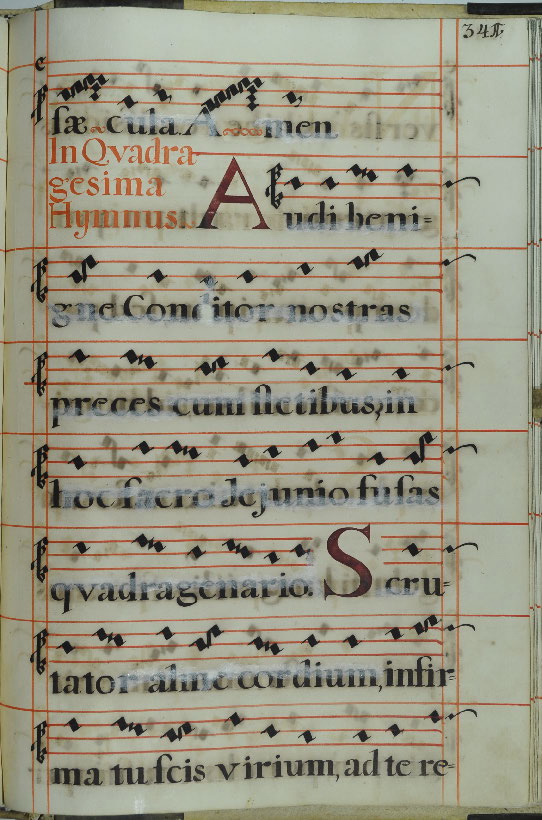 ſæcula. Amen
In Qvadra-
gesima
Hymnus.
Audi beni=
gne Conditor nostras
preces cum fletibus, in
hoc ſacro Jejunio fuſas
qvadragenario. Scru=
tator alme cordium, infir=
ma tu ſcis virium, ad te re=